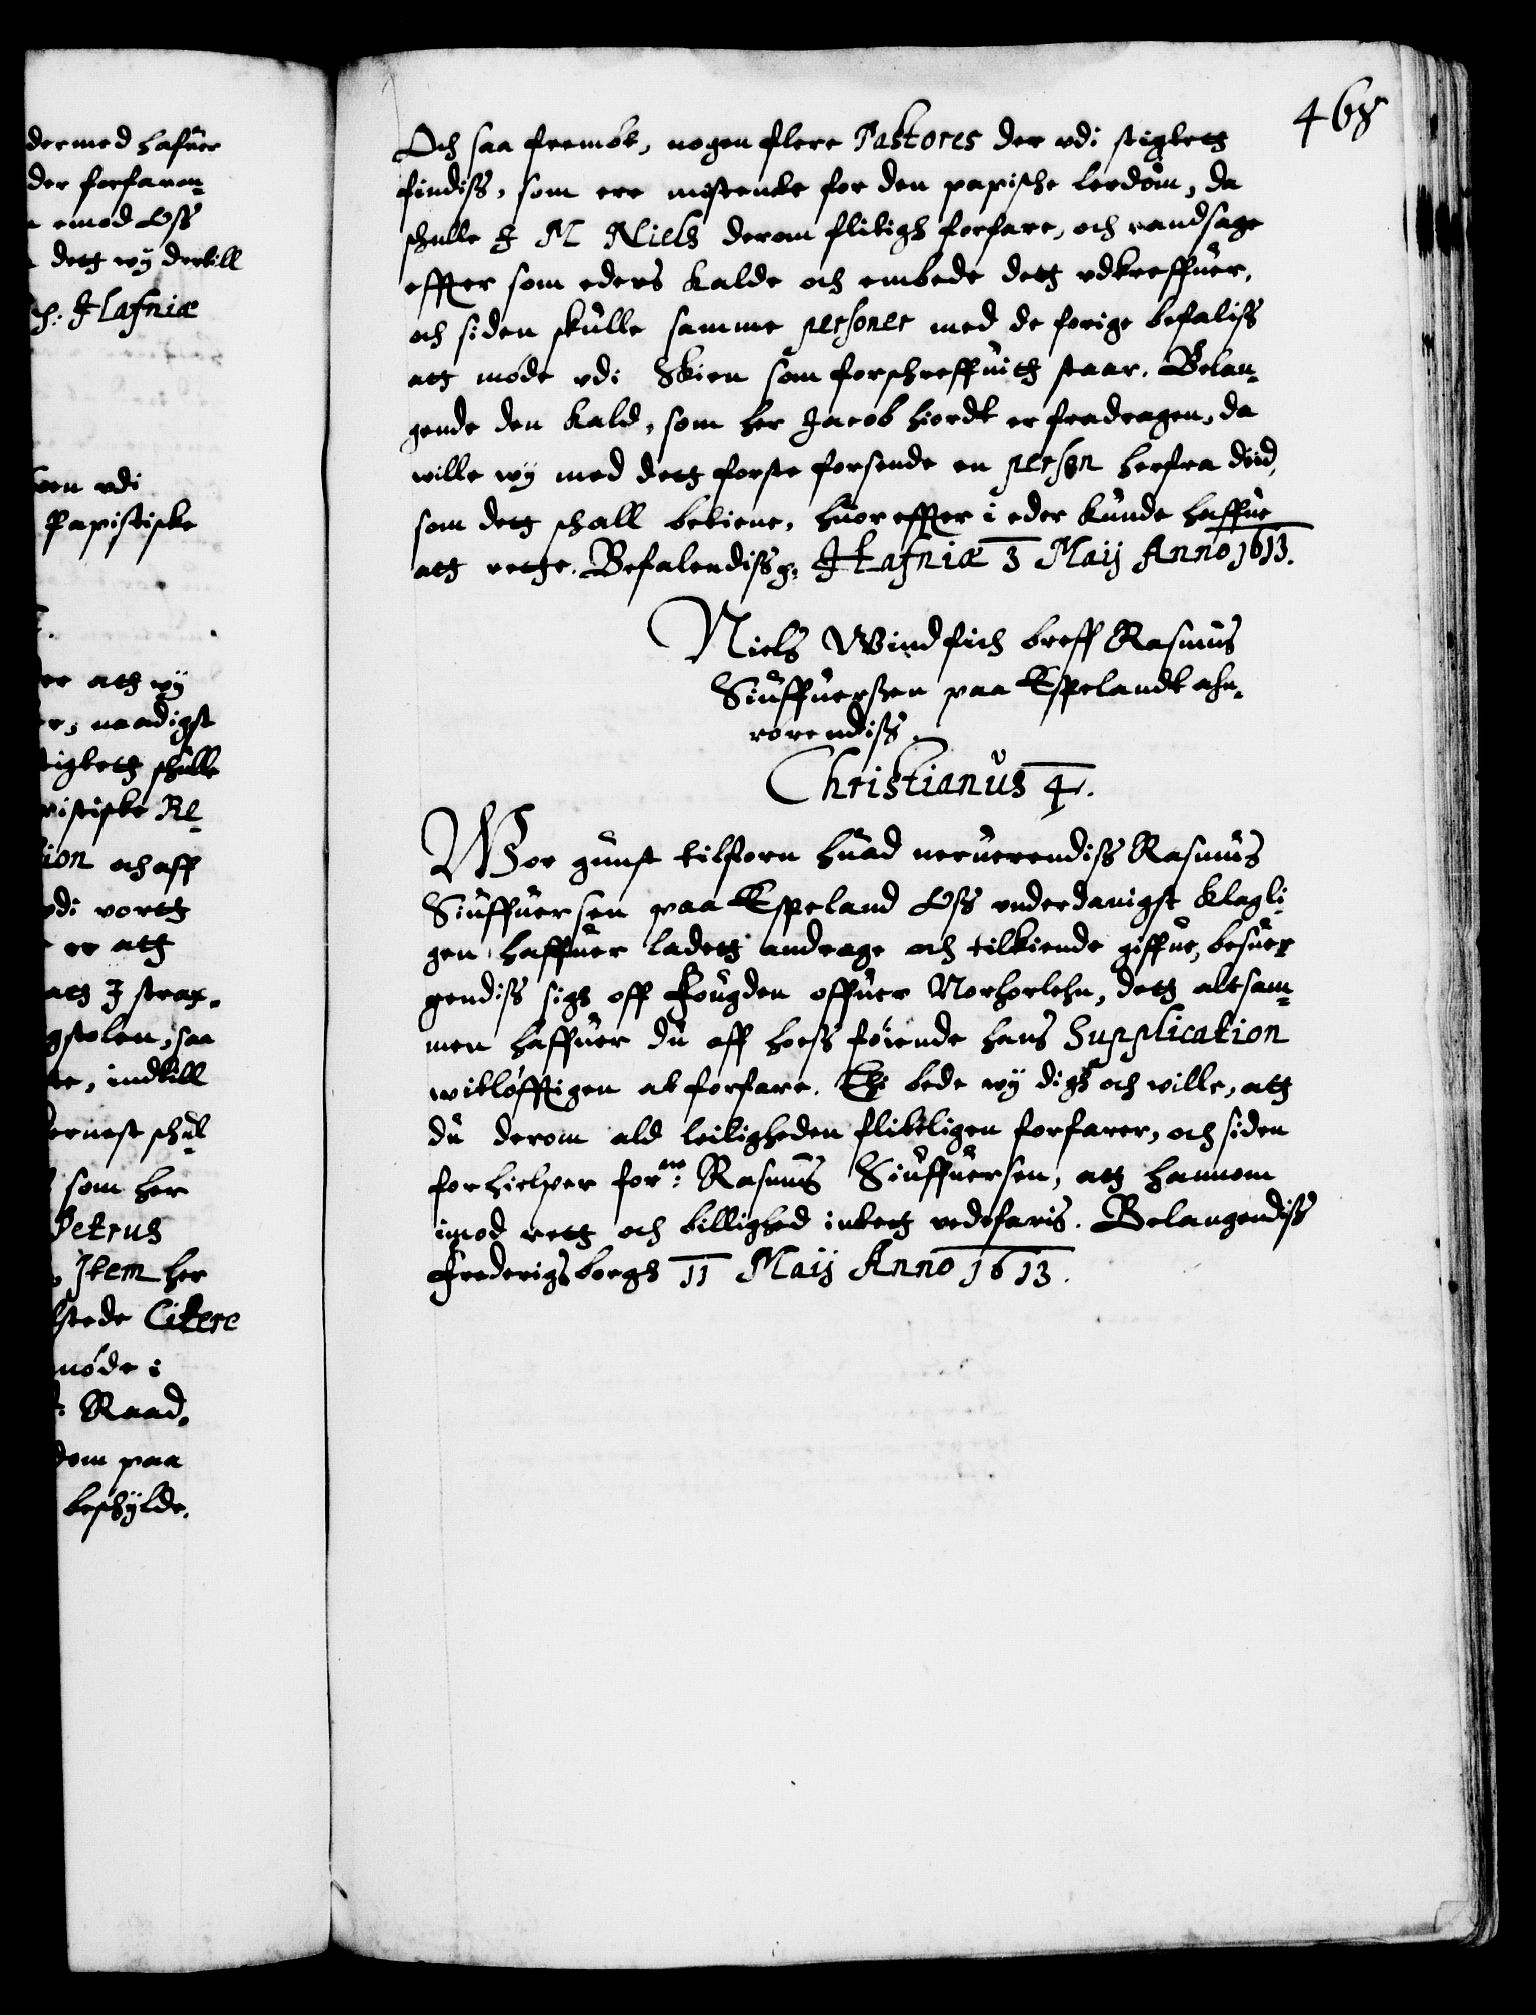 dermed hafuer
der forfaren¬
emod Oss
detz wy dertill
Hafniæ
udi
Papistiske
atz wy
naadigst
schulle
Re¬
ion och aff
udi vortz
er atz
atz I strax¬
stolen, saa
indtill
ernest schul¬
som her
Petrus
Item her
stede Citere
møde i
Raad,
dom paa
beschylde.
468
Och saa frembt, nogen flere Pastores der udi stigtetz
findiss, som ere mistenckt for den papische lerdom, da
schulle I M Niels derom flitigh forfare, och randsage
effter som eders kalde och embede detz udkreffuer,
och siden skulle samme personer med de forige befaliss
atz møde udi Skien som forschreffuitz staar. Belan¬
gende den kald, som her Jacob hiordt er fradragen, da
wille wy med detz forste forsende en person herfra did,
som detz schall betiene, huor effter i eder kunde haffue
atz rette. Befalendiss ꝛ: Hafniæ 3 Maij Anno 1613.
Niels Windfich breff Rasmus
Siuffuersen paa Espelandt ahn¬
rorendiss.
Christianus 4.
Wor gunst tilforn huad neruerendiss Rasmus
Siuffuersen paa Espeland Oss underdanigst klagli¬
gen haffuer ladetz andrage och tilkiende giffue, besuer
gendiss sigh off fougden offuer Norhorlehn, detz altsam¬
men haffuer du aff hoess føiende hans Supplication
witløfftigen at forfare. Thi bede wy digh och wille, atz
du derom ald leiligheden flittligen forfarer, och siden
forhielper forne: Rasmus Siuffuersen, atz hannom
imod retz och billighed intetz vedefaris. Belangendiss
Frederigsborgh 11 Maij Anno 1613.